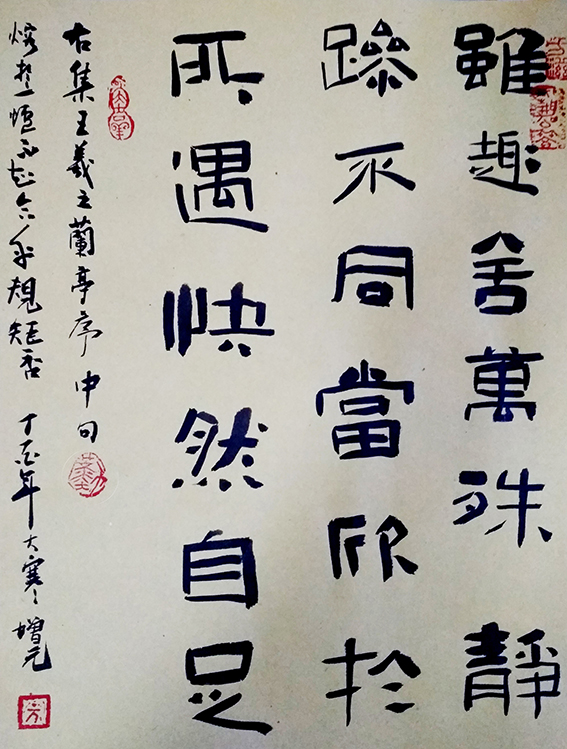 雖趣舍萬殊靜
躁不同當欣於
所遇快然自足
右集王羲之蘭亭序中句
爐不知合乎規矩否 丁酉年大寒 增元